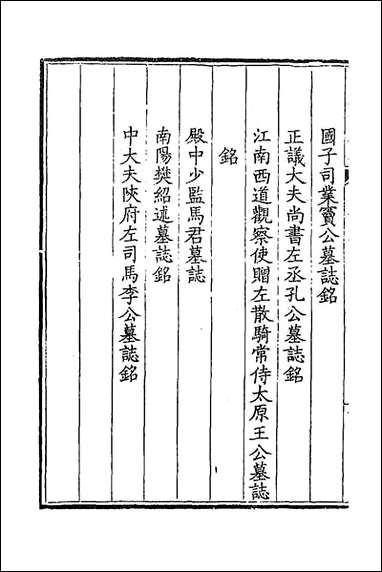 國子司業竇公墓誌銘
正議大夫尚書左丞孔公墓誌銘
江南西道觀察使贈左散騎常侍太原王公墓誌
銘
殿中少監馬君墓誌
南陽樊紹述墓誌銘
中大夫陝府左司馬李公墓誌銘